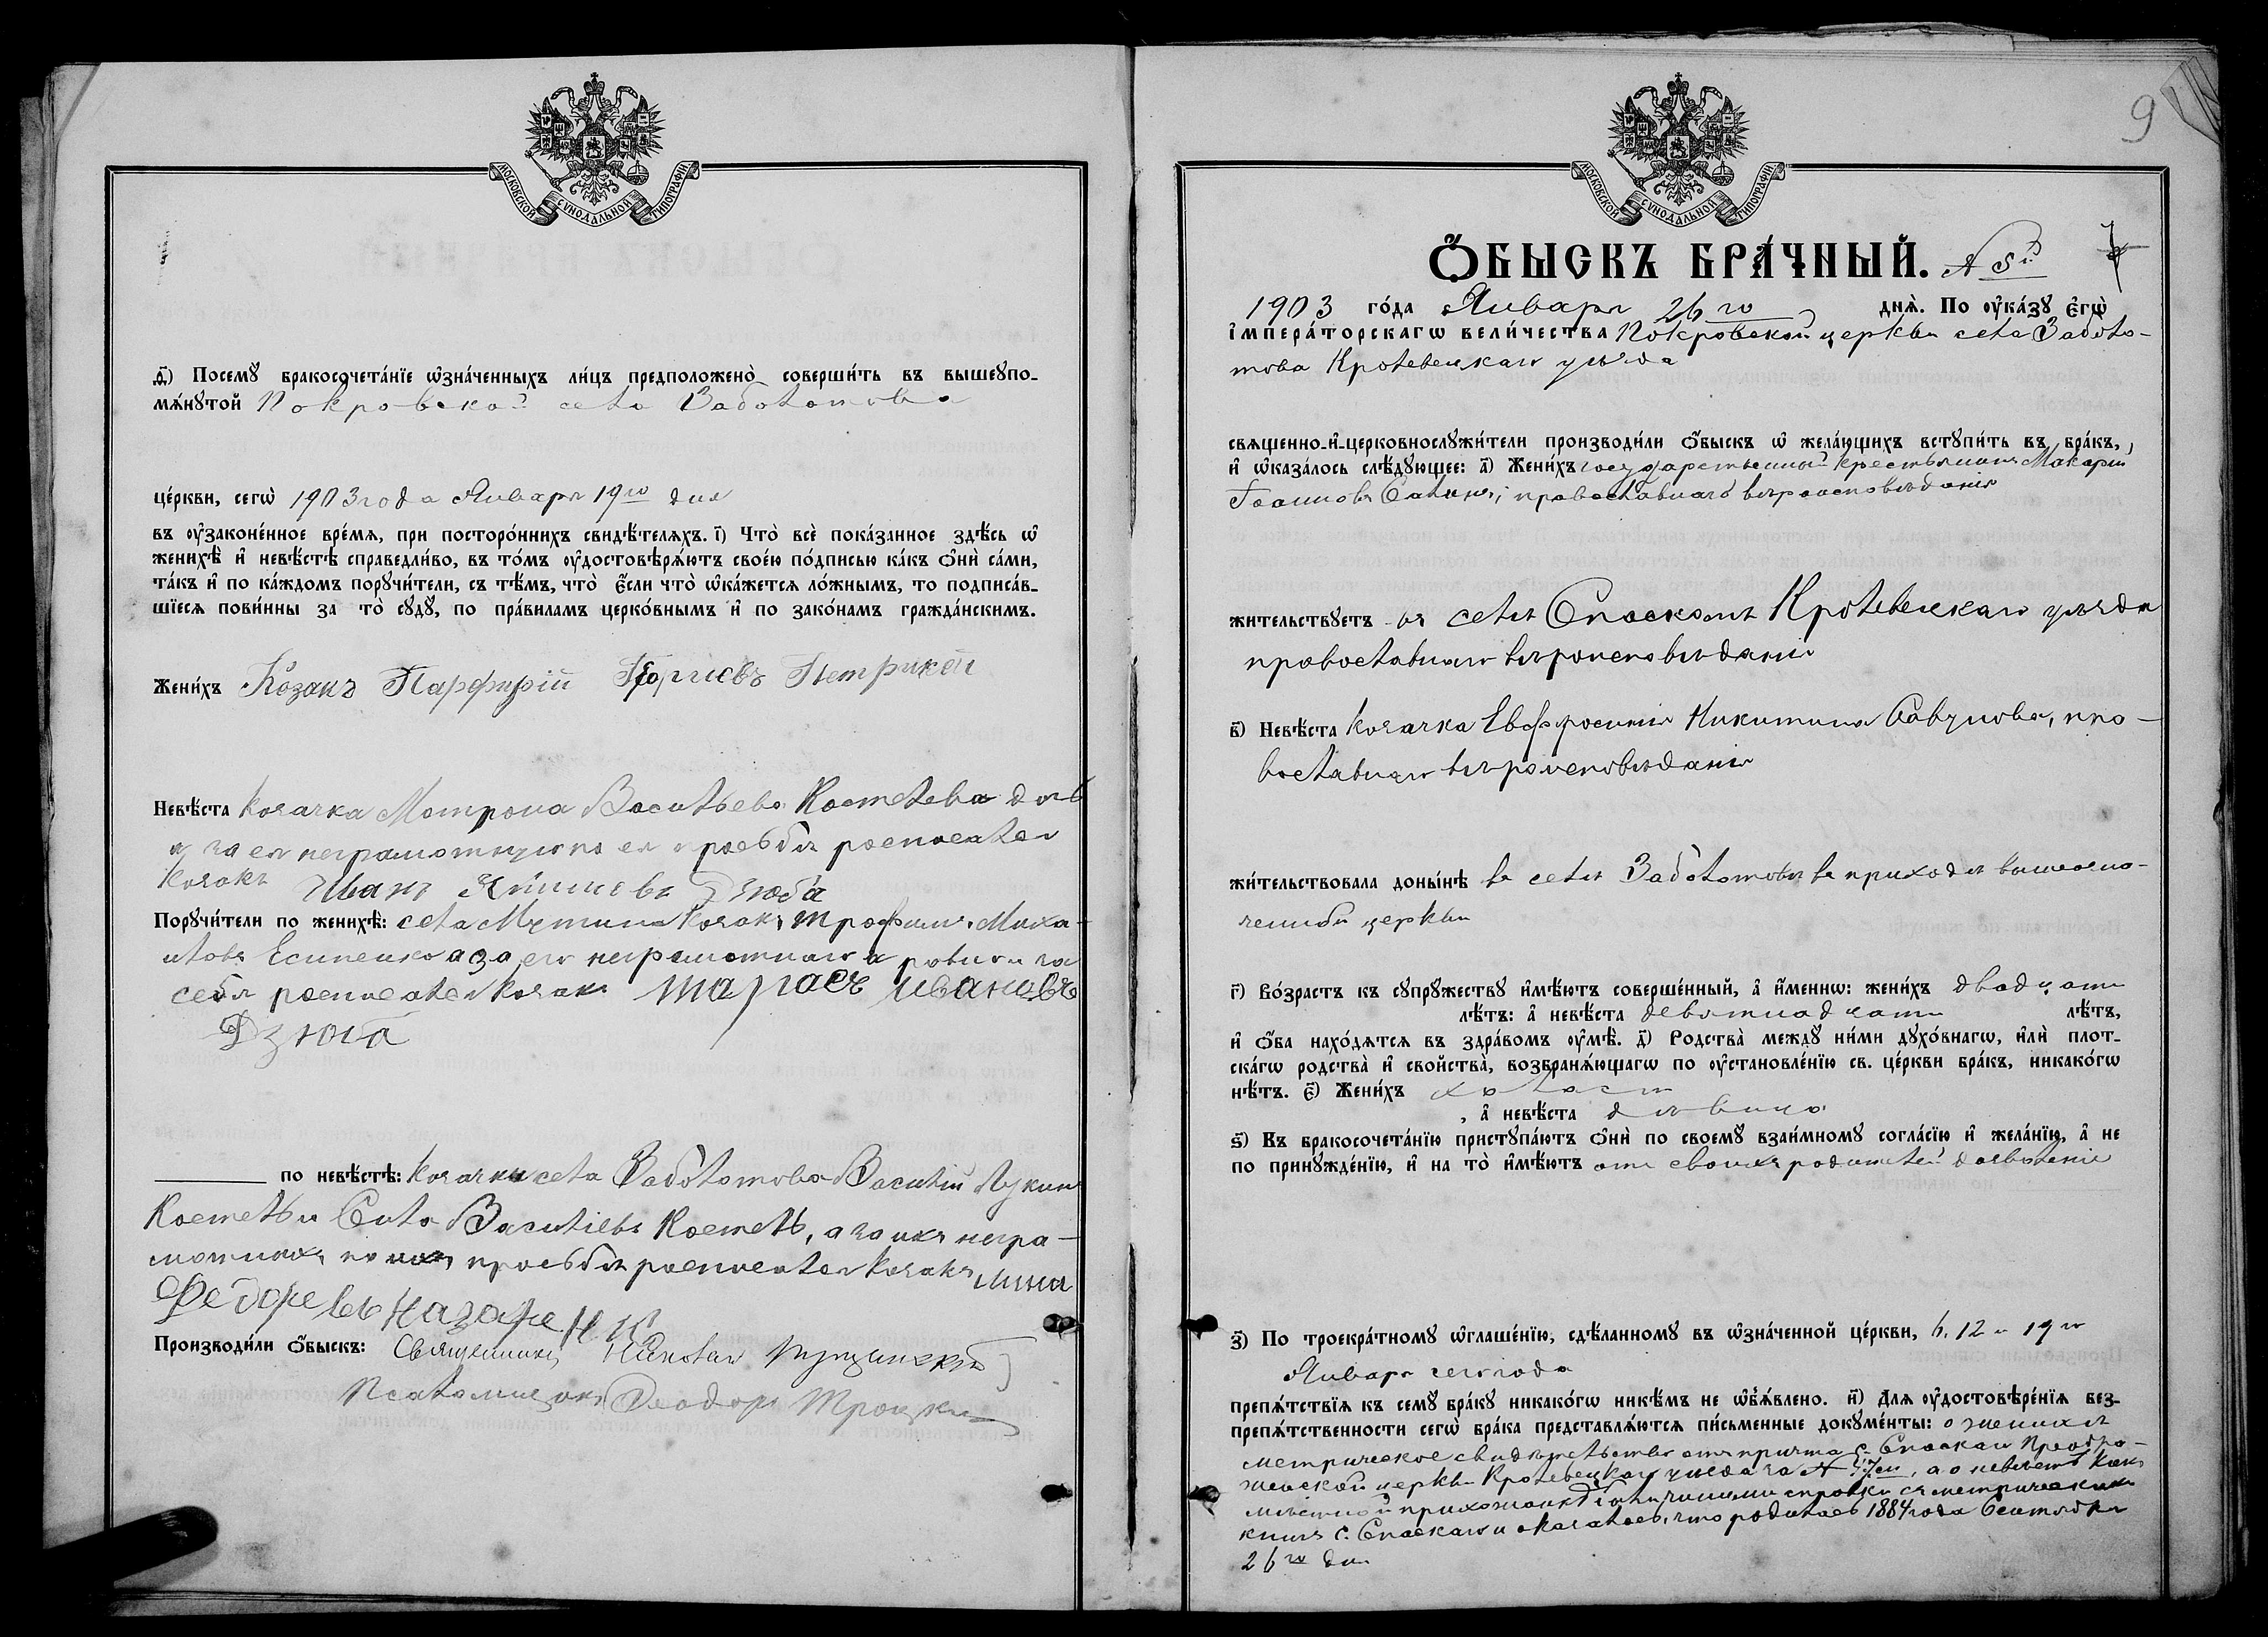 МОСКОВСКОЙ СѴНОДАЛЬНОЙ ТИПОГРАФІИ
д҃) Посемꙋ бракосочета́нїе ѡ҆зна́ченныхъ ли́цъ предположено̀ соверши́ть въ вышеꙋпо-
мѧ́нꙋтой Покровской села Заболотова
це́ркви, сегѡ̀ 1903 года Января 19го дня
въ ᲂу҆законе́нное вре́мѧ, при посторо́ннихъ свидѣ́телѧхъ. і҃) Что̀ всѐ пока́занное здѣ́сь ѡ҆
женихѣ̀ и҆ невѣ́стѣ справедли́во, въ то́мъ ᲂу҆достовѣрѧ́ютъ свое́ю по́дписью ка́къ ѻ҆нѝ са́ми,
та́къ и҆ по ка́ждомъ порꙋчи́тели, съ тѣ́мъ, что̀ є҆́сли что̀ ѡ҆ка́жетсѧ ло́жнымъ, то подписа́в-
шїесѧ пови́нны за то̀ сꙋдꙋ̀, по пра́виламъ церко́внымъ и҆ по зако́намъ гражда́нскимъ.
Жени́хъ Козакъ Парфирій Георгіевъ Петрикей
Невѣ́ста козачка Матрона Васильева Костелева
а за ея неграмотную по ея просьбѣ росписался
козакъ Иванъ Дзюба
Порꙋчи́тели по женихѣ̀: села Мутина козакъ Трофимъ Миха-
иловъ Есипенко а за его неграмотнаго и за
себя росписался козакъ тарасъ ивановъ
Дзюба
по невѣ́стѣ: козачки села Заболотова Василій Лукинъ
Костель и Сила Васильевъ Костель, а за ихъ негра-
мотныхъ по ихъ просьбѣ росписался козакъ
Федоревъ Назаре
Производи́ли ѻ҆́быскъ: Священникъ
Псаломщикъ Ѳеодоръ Троцкій
9
МОСКОВСКОЙ СѴНОДАЛЬНОЙ ТИПОГРАФІИ
Ѻ҆́БЫСКЪ БРА́ЧНЫЙ. N 5й 7
1903 го́да Января 26го днѧ̀. По ᲂу҆ка́зꙋ є҆гѡ̀
і҆мпера́торскагѡ вели́чества Покровской церкви села Заболо-
това Кролевецкаго уѣзда
свѧщенно-и҆-церковнослꙋжи́тели производи́ли ѻ҆́быскъ ѡ҆ жела́ющихъ встꙋпи́ть въ бра́къ,
и҆ ѡ҆каза́лось слѣ́дꙋющее: а҃) Жени́хъ государственный крестьянинъ Макарій
Іоанновъ православнаго вѣроисповѣданія
жи́тельствꙋетъ въ селѣ Спаскомъ Кролевецкаго уѣзда
православнаго вѣроисповѣданія
в҃) Невѣ́ста козачка Евфросинія Никитина Савчукова, пра-
вославнаго вѣроисповѣданія
жи́тельствовала доны́нѣ въ селѣ Заболотовѣ въ приходѣ вышеозна-
ченной церкви
г҃) Во́зрастъ къ сꙋпрꙋ́жествꙋ и҆мѣ́ютъ соверше́нный, а҆ и҆́меннѡ: жени́хъ двадцати
лѣ́тъ: а҆ невѣ́ста девятнадцати лѣ́тъ,
и҆ ѻ҆́ба нахо́дѧтсѧ въ здра́вомъ ᲂу҆мѣ̀. д҃) Родства̀ междꙋ̀ ни́ми дꙋхо́внагѡ, и҆лѝ плот-
ска́гѡ родства̀ и҆ сво́йства̀, возбранѧ́ющагѡ по ᲂу҆становле́нїю св. це́ркви бра́къ, никако́гѡ
нѣ́тъ. є҃) Жени́хъ холостъ
, а҆ невѣ́ста дѣвица
ѕ҃) Въ бракосочета́нїю пристꙋпа́ютъ ѻ҆нѝ по своемꙋ̀ взаи́мномꙋ согла́сїю и҆ жела́нїю, а҆ не
по принꙋжде́нїю, и҆ на то̀ и҆мѣ́ютъ отъ своихъ родителей дозволеніе
з҃) По троекра́тномꙋ ѡ҆глаше́нїю, сдѣ́ланномꙋ въ ѡ҆зна́ченной це́ркви, 6, 12 и 19го
Января сего года
препѧ́тствїѧ къ семꙋ̀ бра́кꙋ никако́гѡ никѣ́мъ не ѡ҆б̾ѧ́влено. и҃) Длѧ ᲂу҆достовѣре́нїѧ без-
препѧ́тственности сегѡ̀ бра́ка представлѧ́ютсѧ пи́сьменные докꙋме́нты: о женихѣ
метрическое свидѣтельство отъ причта с. Спаскаго Преобра-
женской церкви Кролевецкаго уѣзда за N а о невѣстѣ какъ
мѣстной прихожанкѣ справки съ метрическихъ
книгъ с. Спаскаго и оказалось, что родилась 1884 года Сентября
26го дня